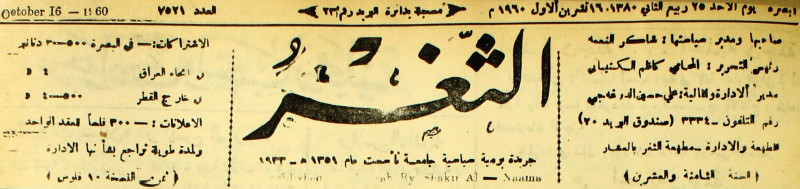 البصره يوم الاحد ٢٥ ربيع الثاني ١٣٨٠، ١٦ تشرين الاول ١٩٦٠ م
مسجلة بدائرة البريد رقم ٢٣
العدد ٧٥٢١
October 16 - 1960
صاحبها ومدير سياستها: شاكر النعمه
رئيس التحرير: المحامي كاظم
مدير الادارة والمالية: علي حسين
رقم التلفون - ٣٣٣٤ (صندوق البريد ٢٠)
المطبعة والادارة - مطبعة الثغر بالعشار
(السنة الثامنة والعشرين)
الثغر
جريدة يومية سياسية جامعة تأسست عام ١٣٥١ هـ - ١٩٣٣
By Shakir Al - Naama
الاشتراكات: - في البصرة ٣٠٠٠ دنانير
في انحاء العراق ٤ د
في خارج القطر ٥٠٠ - ٤ د
الاعلانات: - ٣٠٠ فلساً للعقد الواحد
ولمدة طويلة تراجع بشأنها الادارة
(ثمن النسخة ١٠ فلوس)